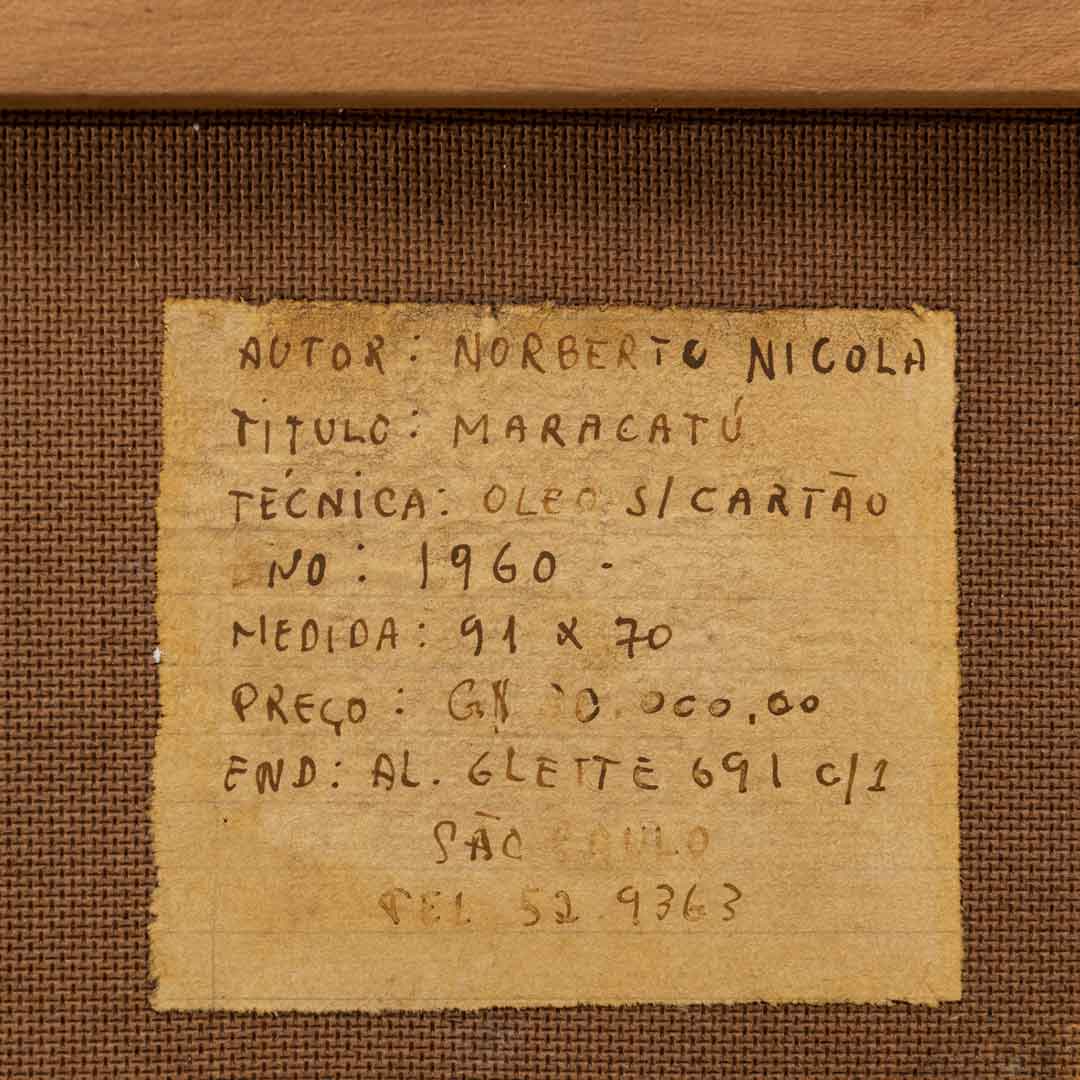 AUTOR: NORBERTO NICOLA
TÍTULO: MARACATÚ
TÉCNICA: OLEO S/ CARTÃO
NO: 1960 -
MEDIDA: 91 X 70
PREÇO: 000,00
END: AL. GLETTE 691 C/1
SÃO PAULO
TEL 52 9363